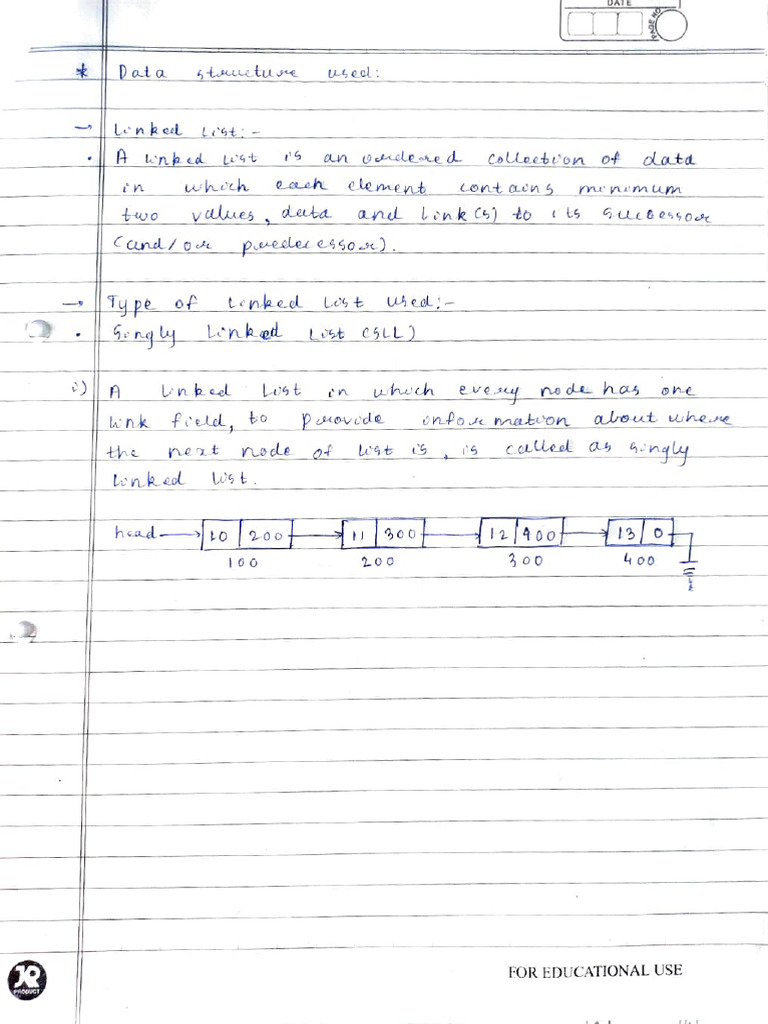 DATE
PAGE NO
* Data structure used:
→ Linked List:-
• A linked list is an ordered collection of data
in which each element contains minimum
two values, data and link(s) to its successor
(and/or predecessor).
→ Type of linked list used:-
• Singly linked list (SLL)
i) A linked list in which every node has one
link field, to provide information about where
the next node of list is, is called as singly
linked list.
head → 10 200 → 11 300 → 12 900 → 13 0
100 200 300 400
PRODUCT
FOR EDUCATIONAL USE